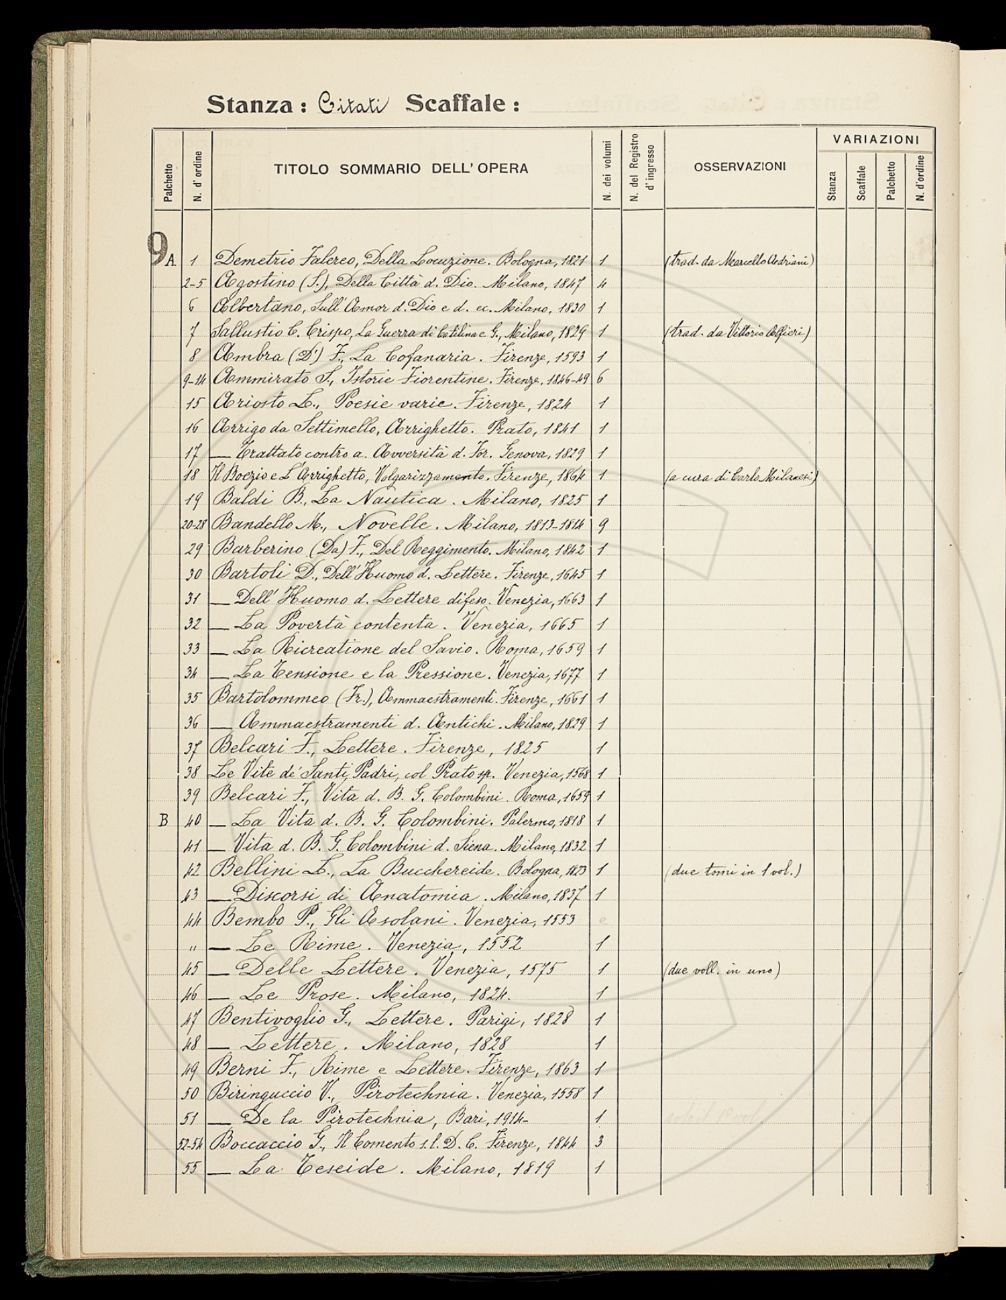 Stanza: Citati Scaffale:
Palchetto N. d'ordine TITOLO SOMMARIO DELL'OPERA N. dei volumi N. del Registro d'ingresso OSSERVAZIONI VARIAZIONI
Stanza Scaffale Palchetto N. d'ordine
9 A 1 Demetrio Falereo, Della Locuzione. Bologna, 1821 1 (trad. da Marcello Adriani)
2-5 Agostino (S.), Della Città d. Dio. Milano, 1847 4
6 Albertano, Sull'Amor d. Dio e d. cc. Milano, 1830 1
7 Sallustio C. Crispo, La Guerra di Catilina e G., Milano, 1829 1 (trad. da Vittorio Alfieri)
8 Ambra (D') F., La Cofanaria. Firenze, 1593 1
9-14 Ammirato S., Istorie Fiorentine. Firenze, 1846-49 6
15 Ariosto L., Poesie varie. Firenze, 1824 1
16 Arrigo da Settimello, Arrighetto. Prato, 1841 1
17 — Trattato contro a. Avversità d. For. Genova, 1829 1
18 Il Boezio e L'Arrighetto, Volgarizzamento. Firenze, 1864 1 (a cura di Carlo Milanesi)
19 Baldi B., La Nautica. Milano, 1825 1
20-28 Bandello M., Novelle. Milano, 1813-1814 9
29 Barberino (Da) F., Del Reggimento. Milano, 1842 1
30 Bartoli D., Dell'Huomo d. Lettere. Firenze, 1645 1
31 — Dell'Huomo d. Lettere difeso. Venezia, 1663 1
32 — La Povertà contenta. Venezia, 1665 1
33 — La Ricreatione del Savio. Roma, 1659 1
34 — La Tensione e la Pressione. Venezia, 1677 1
35 Bartolommeo (Fr.), Ammaestramenti. Firenze, 1661 1
36 — Ammaestramenti d. Antichi. Milano, 1829 1
37 Belcari F., Lettere. Firenze, 1825 1
38 Le Vite de' Santi Padri, col Prato sp. Venezia, 1568 1
39 Belcari F., Vita d. B. G. Colombini. Roma, 1659 1
B 40 — La Vita d. B. G. Colombini. Palermo, 1818 1
41 — Vita d. B. G. Colombini d. Siena. Milano, 1832 1
42 Bellini L., La Bucchereide. Bologna, 1823 1 (due tomi in 1 vol.)
43 — Discorsi di Anatomia. Milano, 1837 1
44 Bembo P., Gli Asolani. Venezia, 1553
„ — Le Rime. Venezia, 1552 1
45 — Delle Lettere. Venezia, 1575 1 (due voll. in uno)
46 — Le Prose. Milano, 1824. 1
47 Bentivoglio G., Lettere. Parigi, 1828 1
48 — Lettere. Milano, 1828 1
49 Berni F., Rime e Lettere. Firenze, 1863 1
50 Biringuccio V., Pirotechnia. Venezia, 1558 1
51 — De la Pirotechnia, Bari, 1914- 1
52-54 Boccaccio G., Il Comento s. l. D. C. Firenze, 1844 3
55 — La Teseide. Milano, 1819 1